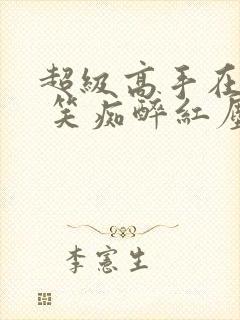 超級高手在
笑痴醉紅
李憲生